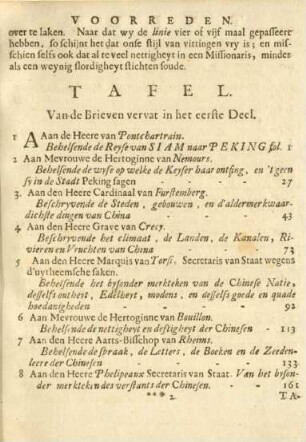 VOORREDEN.
over te laken. Naar dat wy de linie vier of vijf maal gepasseert
hebben, so schijnt het dat onse stijl van vittingen vry is; en mis-
schien selfs ook dat al te veel nettigheyt in een Missionaris, minder
als een weynig slordigheyt stichten soude.
TAFEL.
Van de Brieven vervat in het eerste Deel.
1 Aan de Heere van Pontchartrain.
Behelsende de Reyse van SIAM naar PEKING fol. 1
2 Aan Mevrouwe de Hertoginne van Nemours.
Behelsende de wyse op welke de Keyser haar ontfing, en 't geen
sy in de Stadt Peking sagen - - 27
3. Aan den Heere Cardinaal van Furstemberg.
Beschryvende de Steden, gebouwen, en d'aldermerkwaar-
dichste dingen van China - - 43
4 Aan den Heere Grave van Crecy.
Beschryvende het climaat, de Landen, de Kanalen, Ri-
vieren en Vruchten van China 73
5 Aan den Heere Marquis van Torsi. Secretaris van Staat wegens
d'uytheemsche saken.
Behelsende het bysonder merkteken van de Chinese Natie,
desselfs outheyt, Edelheyt, modens, en desselfs goede en quade
hoedanigheden - - 92
6 Aan Mevrouwe de Hertoginne van Bouillon.
Behelsende de nettigheyt en deftigheyt der Chinesen - 113
7 Aan den Heere Aarts-Bisschop van Rheims.
Behelsende de spraak, de Letters, de Boeken en de Zeeden-
leere der Chinesen - - 133
8 Aan den Heere Phelipeaux Secretaris van Staat. Van het byson-
der merkteken des verstants der Chinesen. - - 161
*** 2. TA-